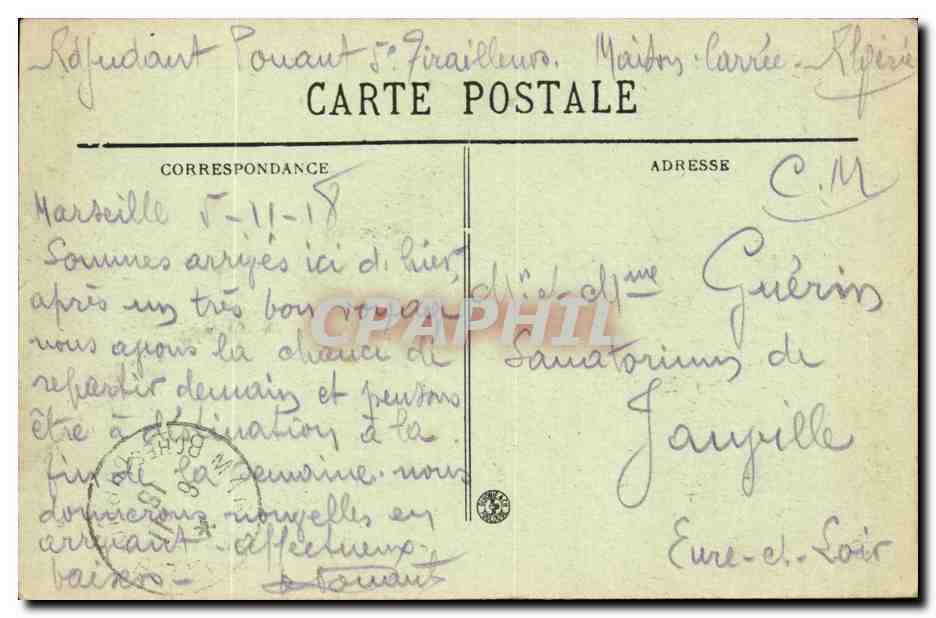 Adjudant Pouant 5e Tirailleurs. Maison-Carrée - Algérie
CARTE POSTALE
CORRESPONDANCE
Marseille 5-11-18
Sommes arrivés ici d. hier,
après un très bon voyage
nous avons la chance de
repartir demain et pensons
être à destination à la
fin de la semaine. nous
donnerons nouvelles en
arrivant - affectueux
baisers - Pouant
ADRESSE
C.M
Mr et Mme Guérin
Sanatorium de
Janville
Eure-et-Loir
CPAPHIL